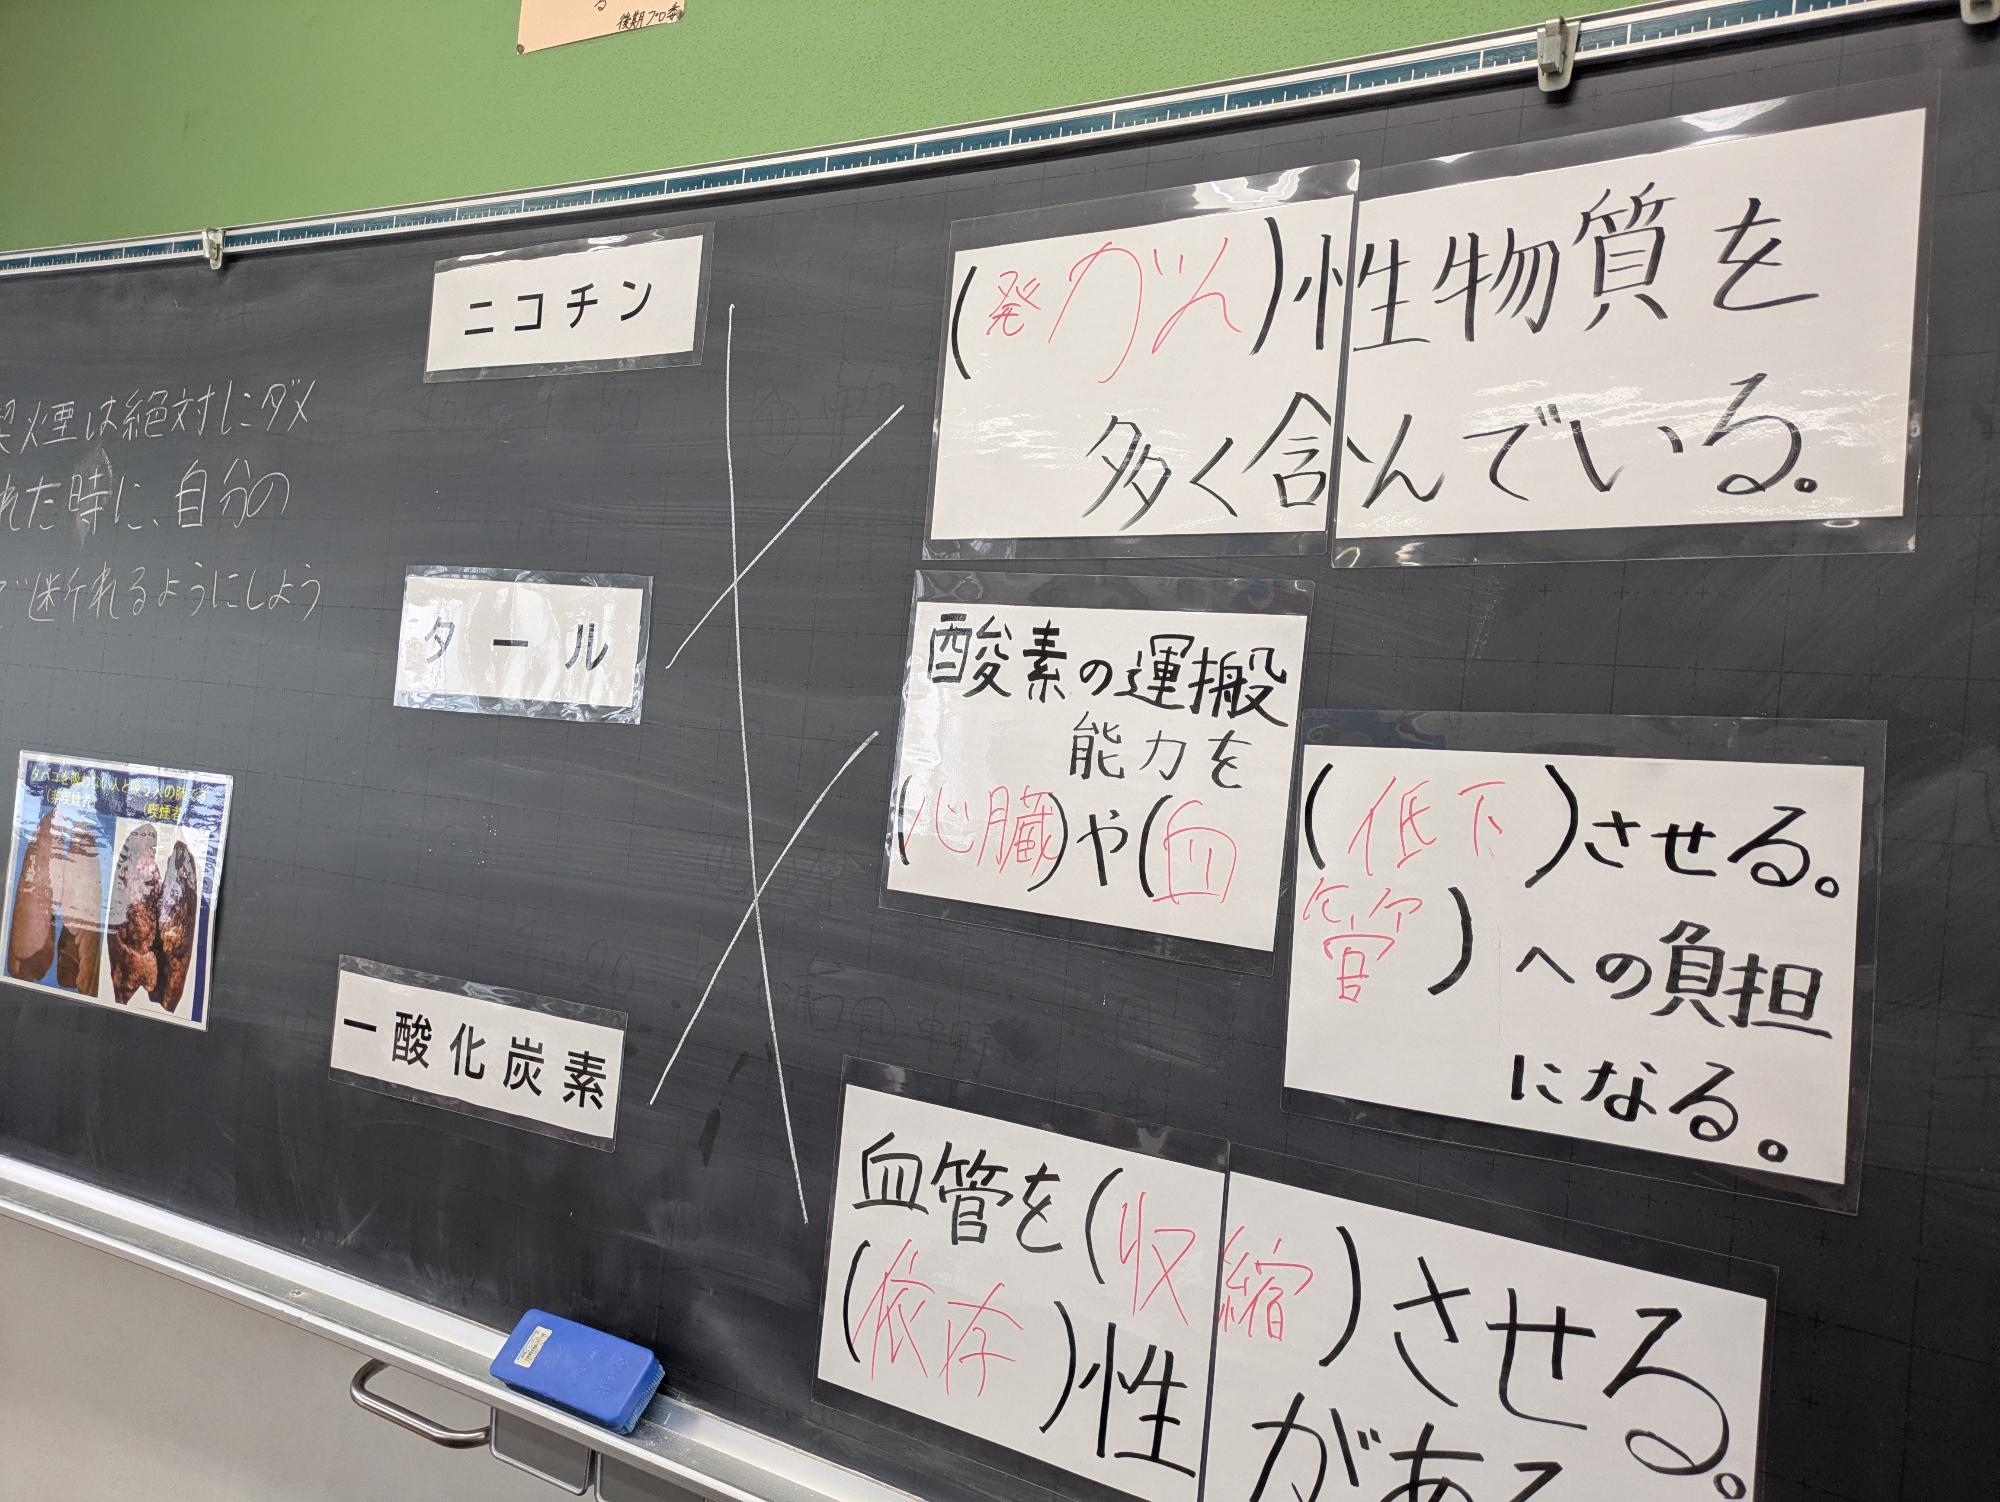 後期プロ委
煙は絶対にダメ
れた時に、自分の
で断れるようにしよう
タバコを吸わない人と吸う人の肺です
(非喫煙者)
(喫煙者)
ニコチン
タール
一酸化炭素
(発がん)性物質を
多く含んでいる。
酸素の運搬
能力を(低下)させる。
(心臓)や(血管)への負担
になる。
血管を(収縮)させる。
(依存)性がある